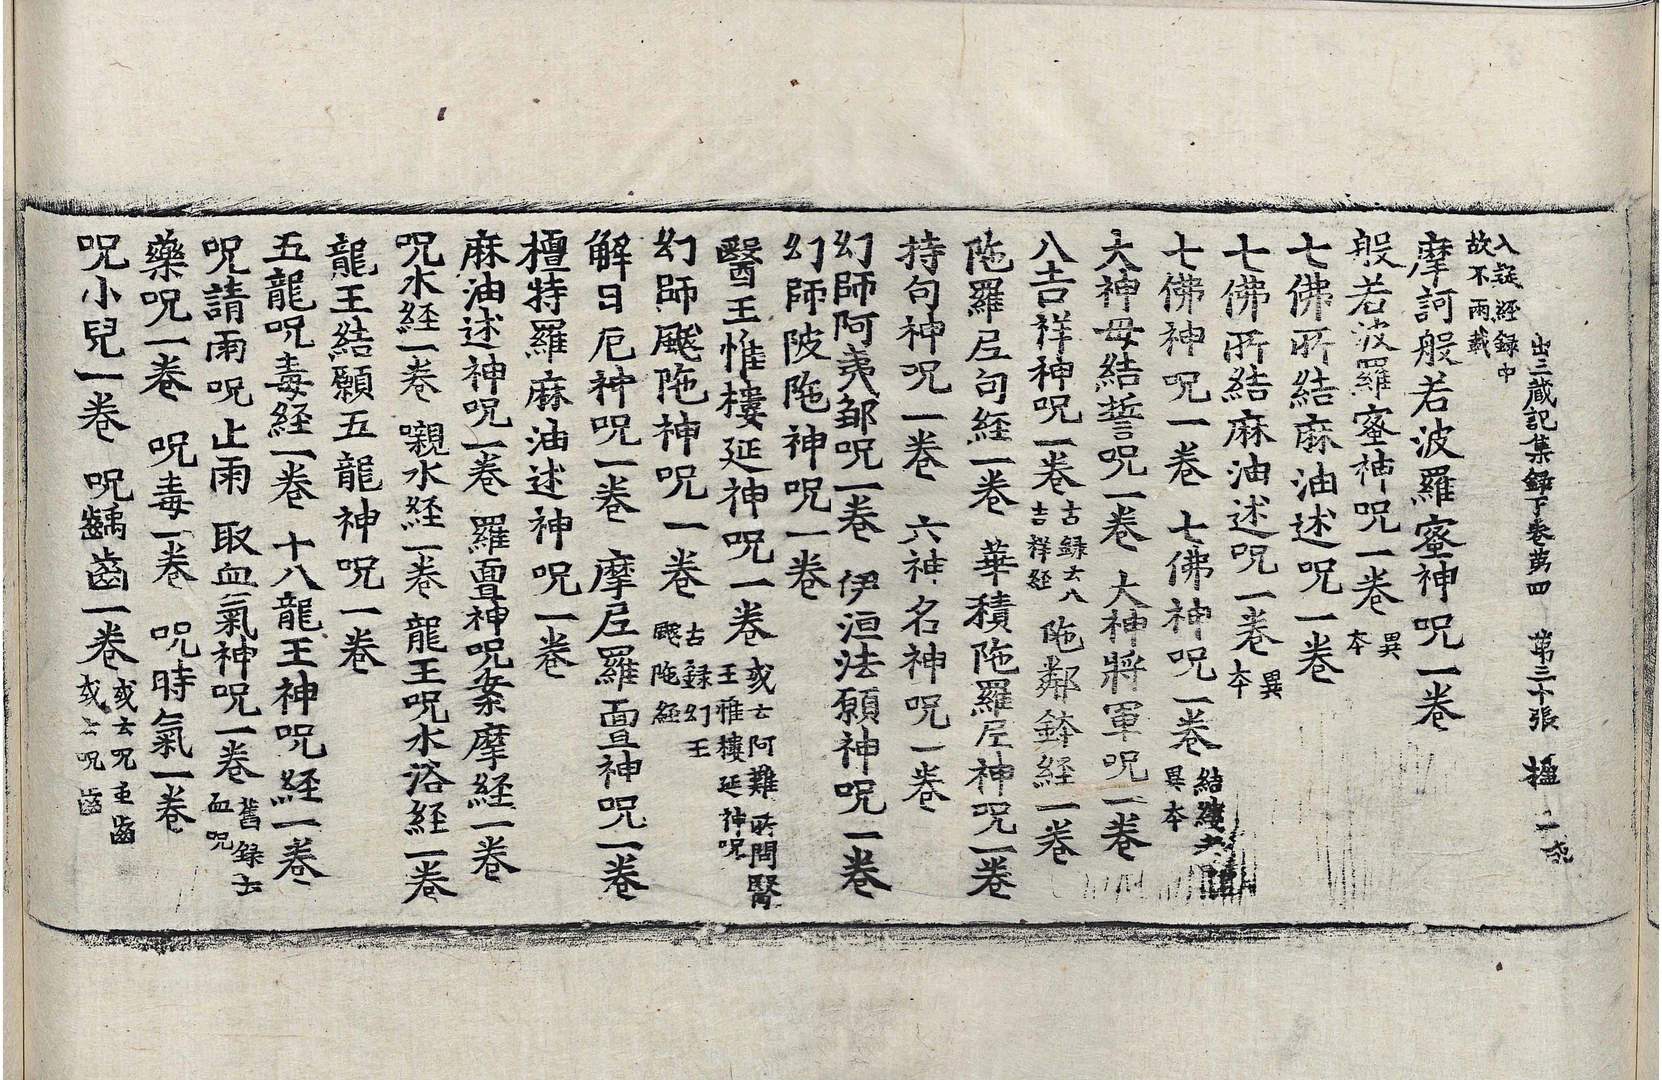 出三藏記集録下卷苐四 第三十張 楹
入疑経録中
故不兩載
摩訶般若波羅蜜神呪一卷
般若波羅蜜神呪一卷 異本
七佛所結麻油述呪一卷
七佛所結麻油述呪一卷 異本
七佛神呪一卷 七佛神呪一卷 結縷 異本
大神母結誓呪一卷 大神將軍呪一卷
八吉祥神呪一卷 古録云八吉祥経 陁鄰鉢経一卷
陁羅尼句経一卷 華積陁羅尼神呪一卷
持句神呪一卷 六神名神呪一卷
幻師阿夷鄒呪一卷 伊洹法願神呪一卷
幻師陂陁神呪一卷
醫王惟樓延神呪一卷 或云阿難所問醫王雅樓延神呪
幻師颰陁神呪一卷 古録幻王颰陁経
解日厄神呪一卷 摩尼羅亶神呪一卷
檀特羅麻油述神呪一卷
麻油述神呪一卷 羅亶神呪案摩経一卷
呪水経一卷 嚫水経一卷 龍王呪水浴経一卷
龍王結願五龍神呪一卷
五龍呪毒経一卷 十八龍王神呪経一卷
呪請雨呪止雨 取血氣神呪一卷 舊録云血呪
藥呪一卷 呪毒一卷 呪時氣一卷
呪小兒一卷 呪齲齒一卷 或云呪䖝齒或云呪齒